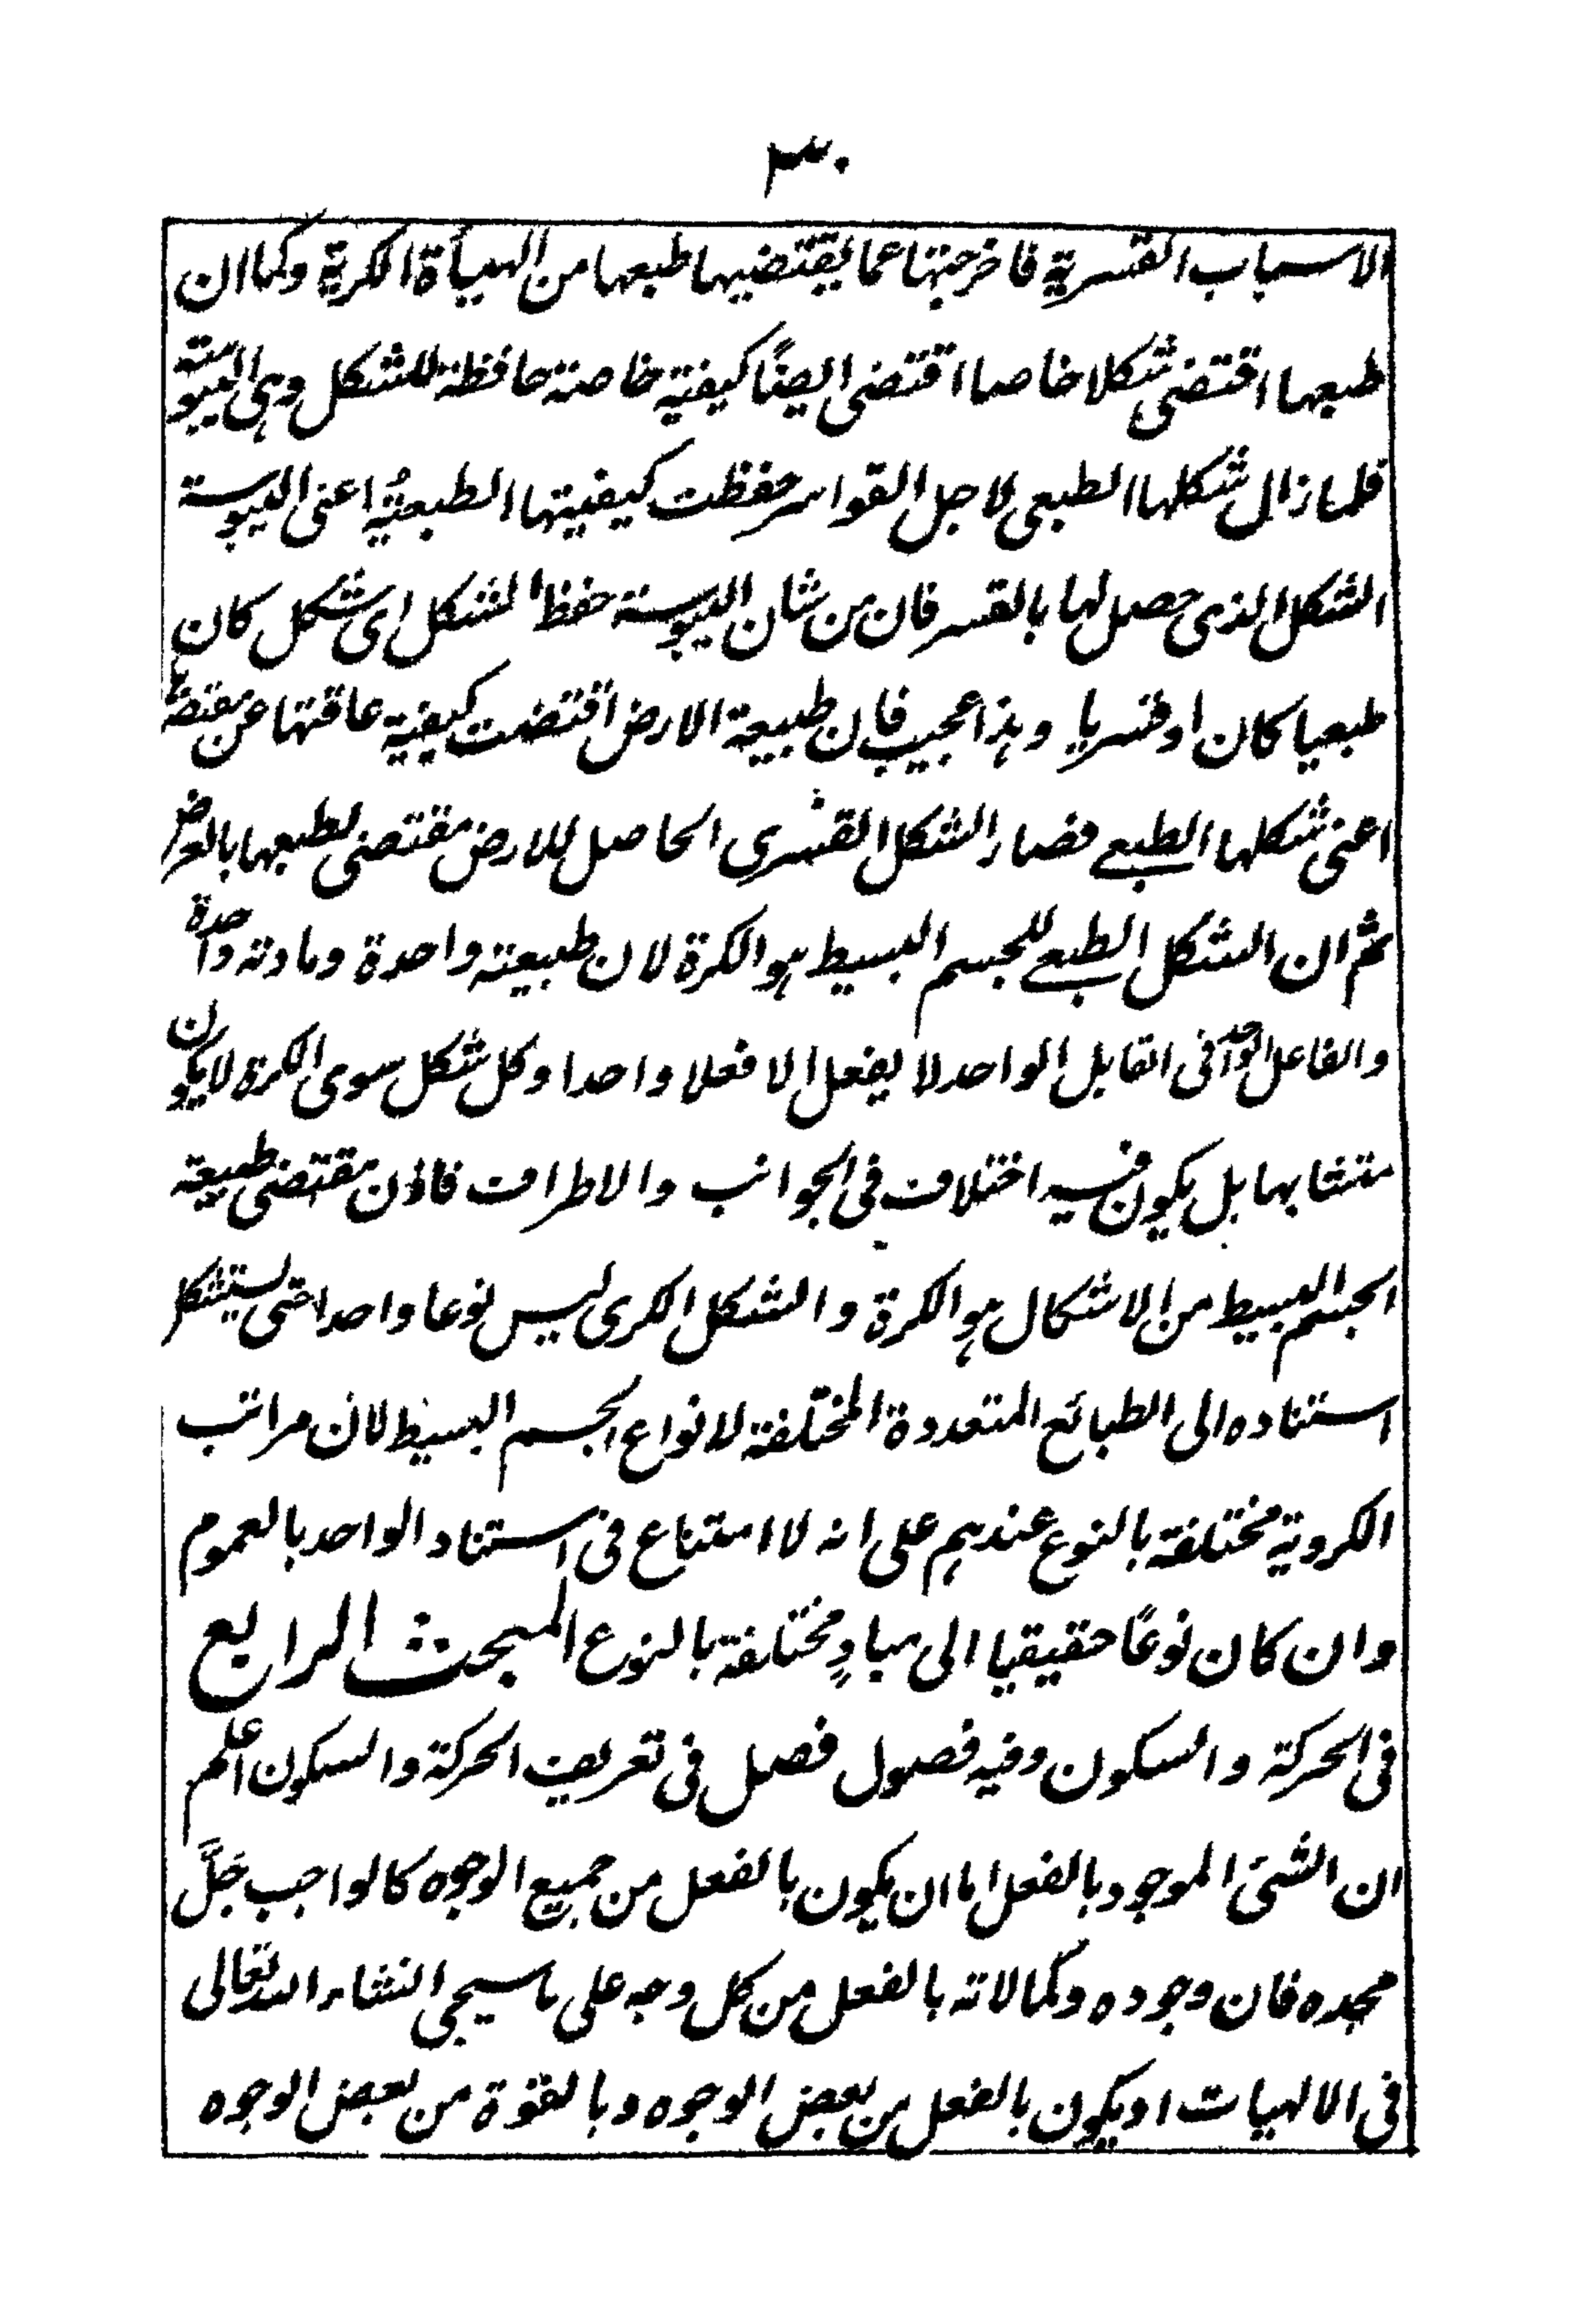 ٣٠
الاسباب القسرية فاخرجتها عما يقتضيها طبعها من الهيأة الكرية وكما ان
طبعها اقتضى شكلا خاصا اقتضى ايضًا كيفية خاصة حافظة للشكل وهى اليبوسة
فلما زال شكلها الطبعى لاجل القواسر حفظت كيفيتها الطبعيةُ اعنى اليبوسة
الشكل الذى حصل لها بالقسر فان من شان اليبوسة حفظ الشكل اى شكل كان
طبعيا كان او قسريا وهذا عجيب فان طبيعة الارض اقتضت كيفية عاقتها عن مقتضاها
اعنى شكلها الطبعے فصار الشكل القسرى الحاصل للارض مقتضى لطبعها بالعرض
ثم ان الشكل الطبعے للجسم البسيط هو الكرة لان طبيعته واحدة ومادته واحدة
والفاعل الواحد فى القابل الواحد لا يفعل الا فعلا واحدا وكل شكل سوى الكرة لا يكون
متشابها بل يكون فيه اختلاف فى الجوانب والاطراف فاذن مقتضى طبيعة
الجسم البسيط من الاشكال هو الكرة والشكل الكرى ليس نوعا واحدا حتى يستشكل
استناده الى الطبائع المتعددة المختلفة لانواع الجسم البسيط لان مراتب
الكروية مختلفة بالنوع عندهم على انه لا امتناع فى استناد الواحد بالعموم
وان كان نوعًا حقيقيا الى مبادٍ مختلفة بالنوع المبحث الرابع
فى الحركة والسكون وفيه فصول فصل فى تعريف الحركة والسكون اعلم
ان الشئ الموجود بالفعل اما ان يكون بالفعل من جميع الوجوه كالواجب جَلَّ
مجده فان وجوده وكمالاته بالفعل من كل وجه على ما سيجى انشاء الله تعالى
فى الالهيات او يكون بالفعل من بعض الوجوه وبالقوة من بعض الوجوه